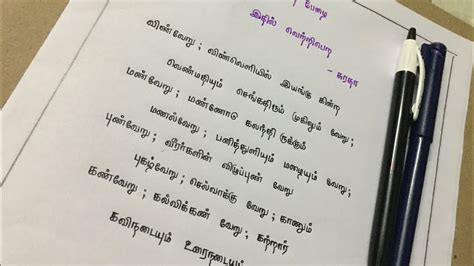 பேனை
இதில் வெற்றிபெற
- சுரதா
விண்வேறு ; விண்வெளியில் இயங்கு கின்ற
வெண்மதியும் செங்கதிரும் முகிலும் வேறு;
மண்வேறு ; மண்ணோடு கலந்தி ருக்கும்
மணல்வேறு ; பனித்துளியும் மழையும் வேறு;
புண்வேறு ; வீரர்களின் விழுப்புண் வேறு
புகழ்வேறு ; செல்வாக்கு வேறு ; காணும்
கண்வேறு ; கல்விக்கண் வேறு ; கற்றார்
கவிநடையும் உரைநடையும்